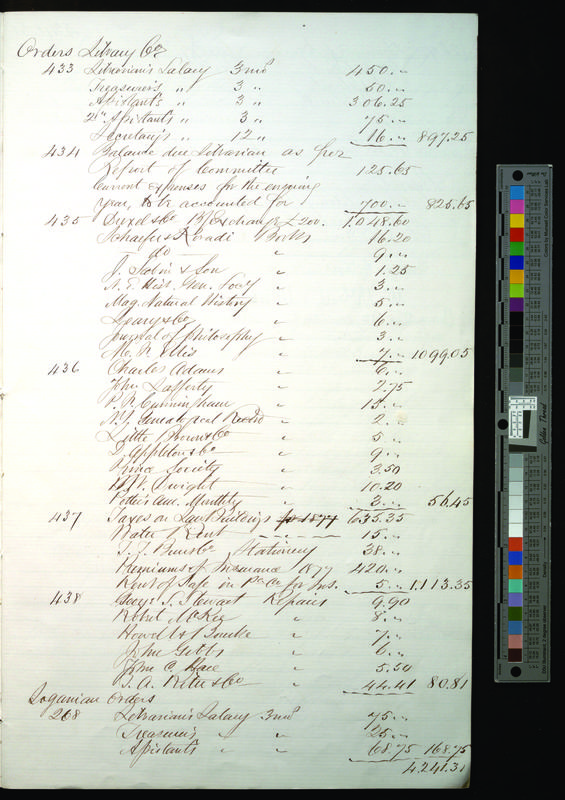 Orders Library Co
433 Librarian's Salary 3 mos 450.--
Treasurer's " 3 " 50.--
Assistant's " 3 " 306.25
2d Assistant's " 3 " 75.--
Secretary's " 12 " 16.-- 897.25
434 Balance due Librarian as per
Report of Committee 125.65
Current expenses for the ensuing
year, to be accounted for 700.-- 825.65
435 Drexel & Co B/ Exchange £200. 1.048.60
Schaefer & Koradi Books 16.20
do " 9.--
J. Sabin & Son " 1.25
N. E. Hist. Gen. Socy " 3.--
Mag. Natural History " 5.--
Leary & Co " 6.--
Journal of Philosophy " 3.--
Ellis " 7.-- 1099.05
436 Charles Adams " 6.--
John Lafferty " 7.75
Cunningham " 13.--
N.Y. Genealogical Record " 2.--
Little Brown & Co " 5.--
D. Appleton & Co " 9.--
Prince Society " 3.50
Dwight " 10.20
Potter's Am. Monthly " 3.-- 56.45
437 Taxes on Law Buildings for 1877 635.35
Water Rent 15.--
Stationery 38.--
Premiums of Insurance 1877 420.--
Rent of Safe in for Ins. 5.-- 1.113.35
438 George S. Stewart Repairs 9.90
Robert McKee " 8.--
Howell & Bourke " 7.--
John Gibbs " 6.--
John C. Hace " 5.50
& Co " 44.41 80.81
Loganian Orders
268 Librarian's Salary 3 mos 75.--
Treasurer's " " 25.--
Assistant's " " 68.75 168.75
4.241.31